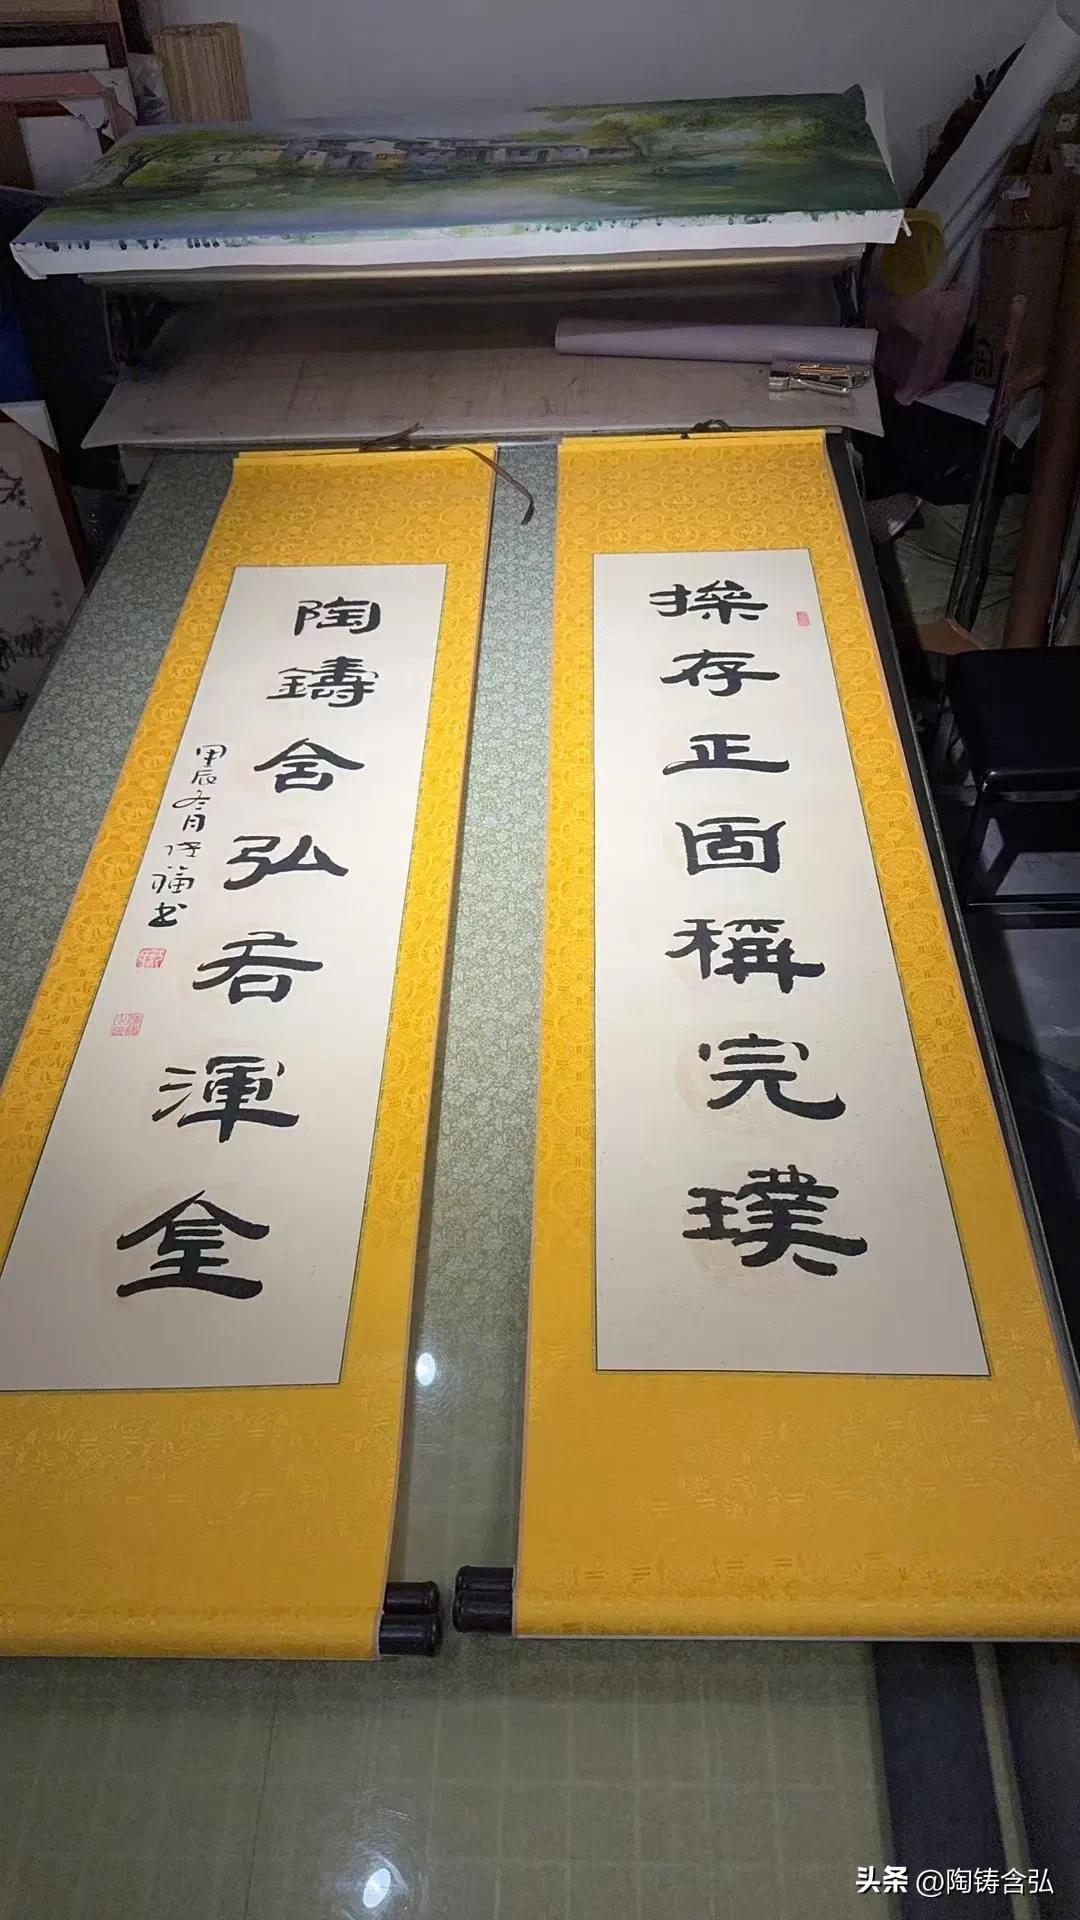 操存正固稱完璞
陶鑄含弘若渾金
甲辰冬月福书
头条 @陶铸含弘